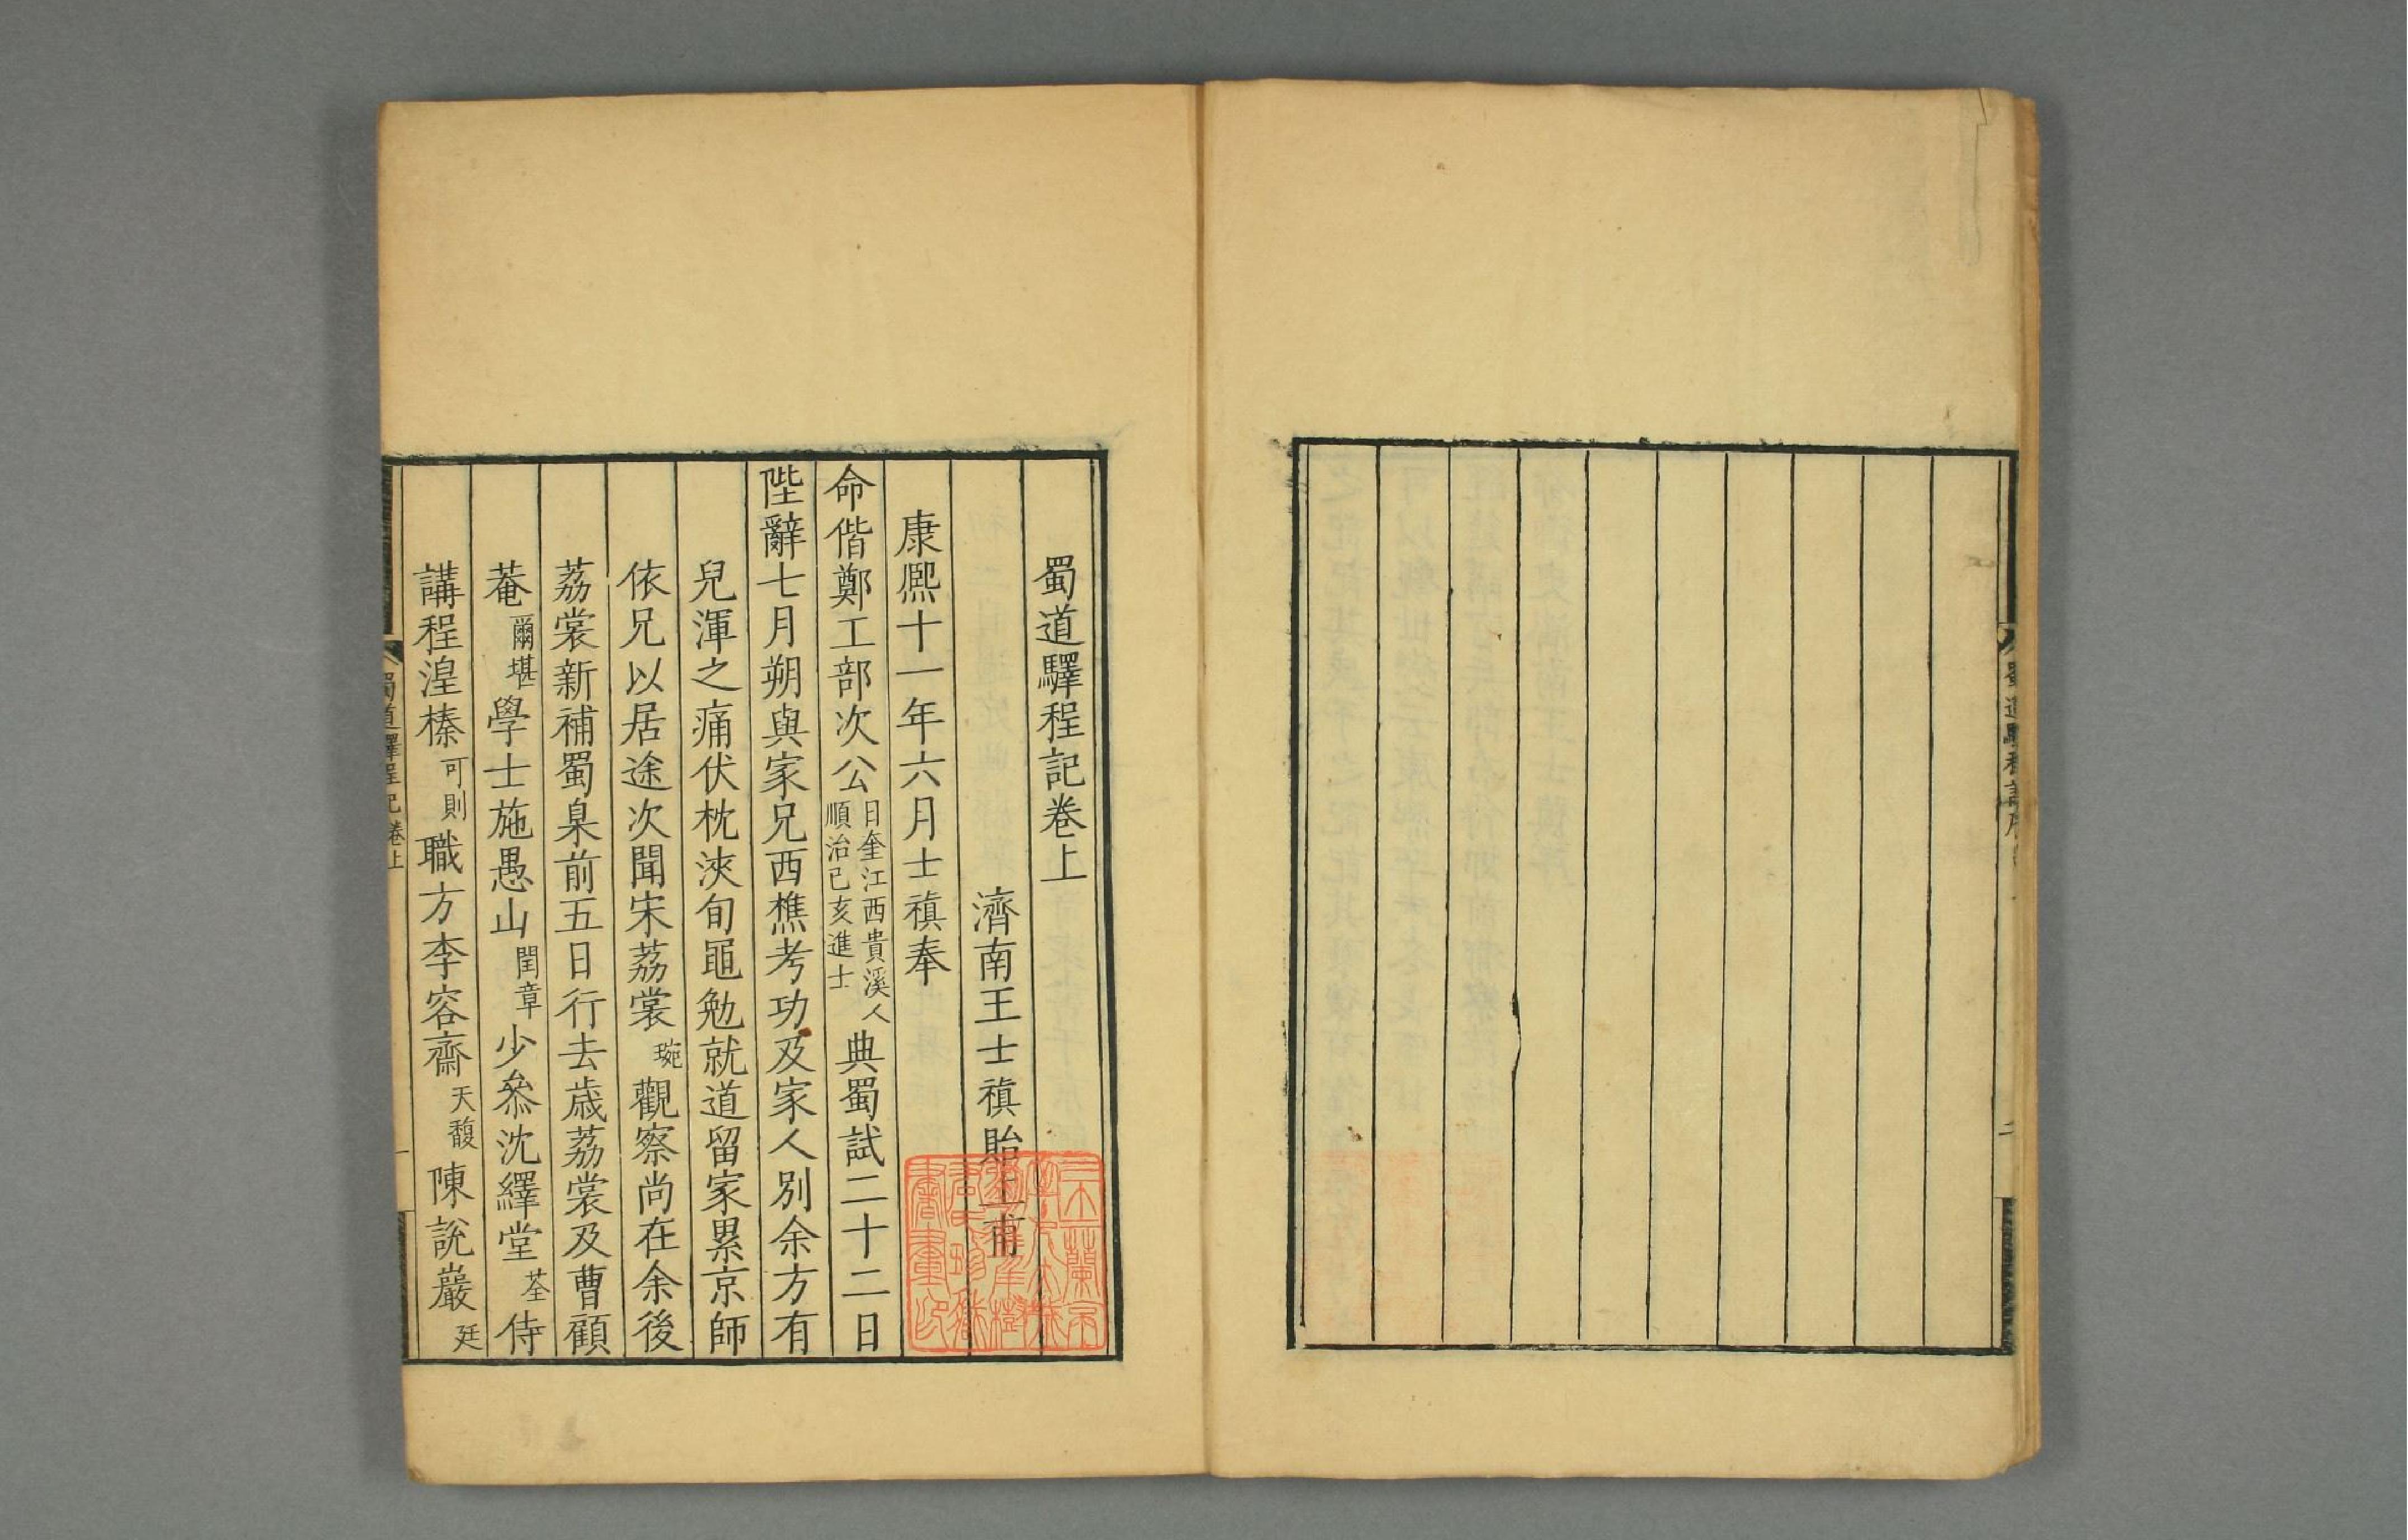 蜀道驛程記卷上
濟南王士禛貽上甫
康熙十一年六月士禛奉
命偕鄭工部次公日奎江西貴溪人順治己亥進士典蜀試二十二日
陛辭七月朔與家兄西樵考功及家人別余方有
兒渾之痛伏枕浹旬黽勉就道留家累京師
依兄以居途次聞宋荔裳琬觀察尚在余後
荔裳新補蜀臬前五日行去歳荔裳及曹顧
菴爾堪學士施愚山閏章少叅沈繹堂荃侍
講程湟榛可則職方李容齋天馥陳說巖廷
蜀道驛程記卷上
一
蜀道驛程記序
二